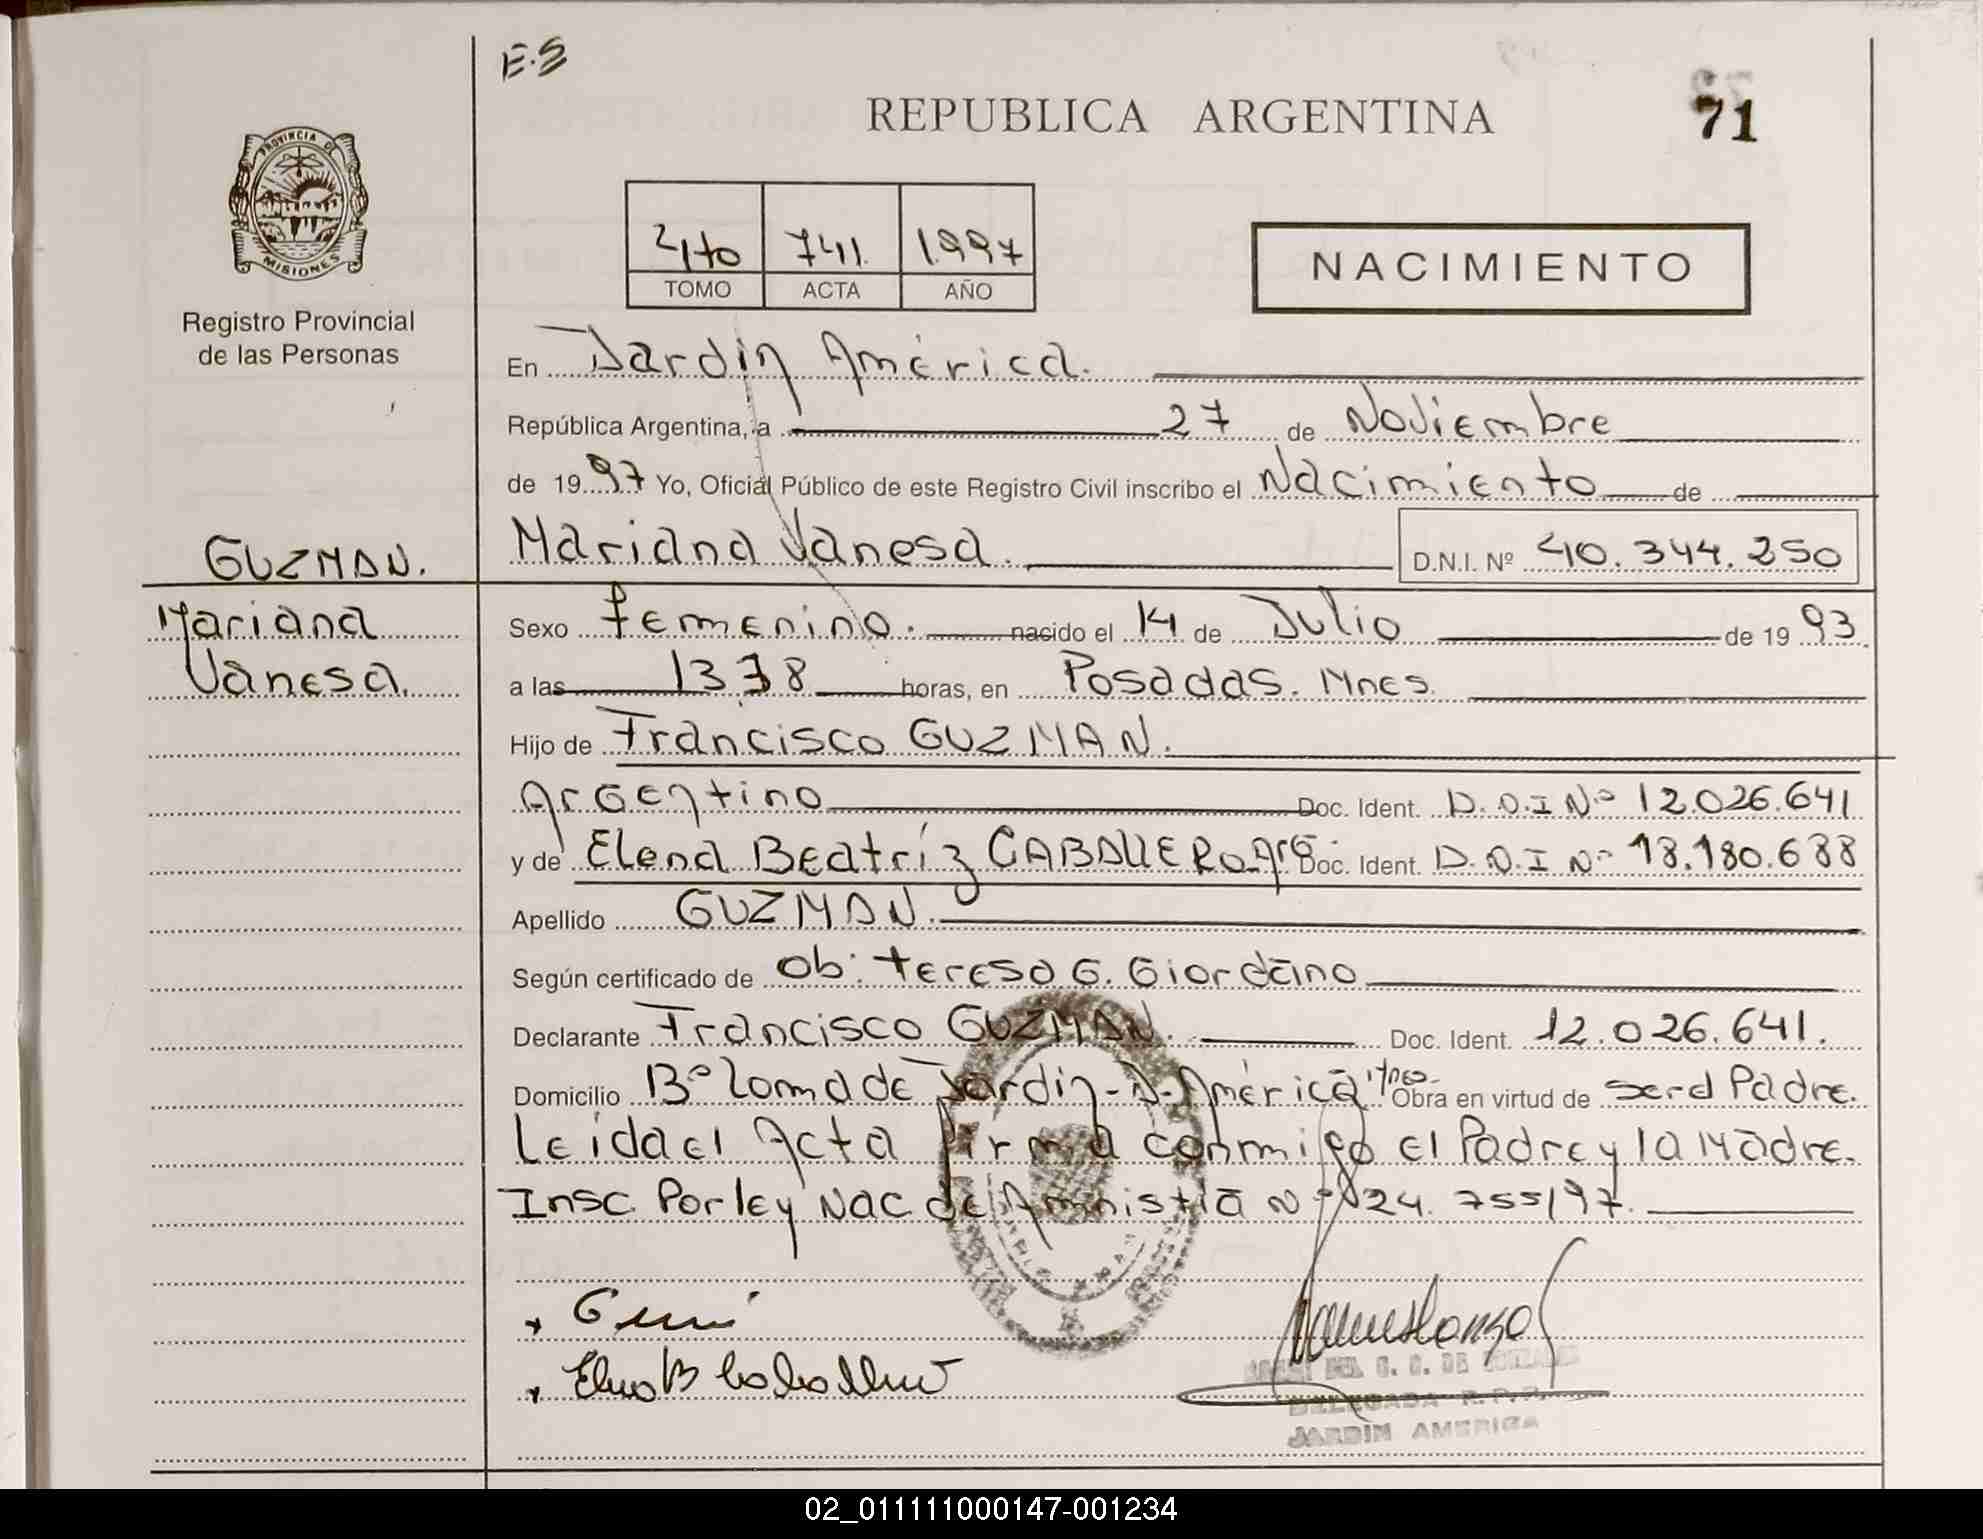 E.S
REPUBLICA ARGENTINA
71
PROVINCIA DE
MISIONES
4to 741. 1.997
TOMO ACTA AÑO
NACIMIENTO
Registro Provincial
de las Personas
En Jardín América.
República Argentina, a 27 de Noviembre
de 1997 Yo, Oficial Público de este Registro Civil inscribo el Nacimiento de
GUZMAN. Mariana Vanesa. D.N.I. Nº 40.344.250
Mariana Sexo femenino. nacido el 14 de Julio de 1993
Vanesa. a las 13 38 horas, en Posadas. Mnes.
Hijo de Francisco GUZMAN.
Argentino Doc. Ident. D.N.I Nº 12.026.641
y de Elena Beatríz CABALLERO Arg Doc. Ident. D.N.I Nº 18.180.688
Apellido GUZMAN.
Según certificado de Ob: Teresa G. Giordano
Declarante Francisco GUZMAN. Doc. Ident. 12.026.641.
Domicilio Bº Loma de Jardín-J-América Mnes- Obra en virtud de ser el Padre.
Leida el Acta firma conmigo el Padre y la Madre.
Insc. Por ley Nac de Amnistía Nº 24.755/97.
Elena B Caballero
DELEGADA R.P.P.
JARDIN AMERICA
02_011111000147-001234